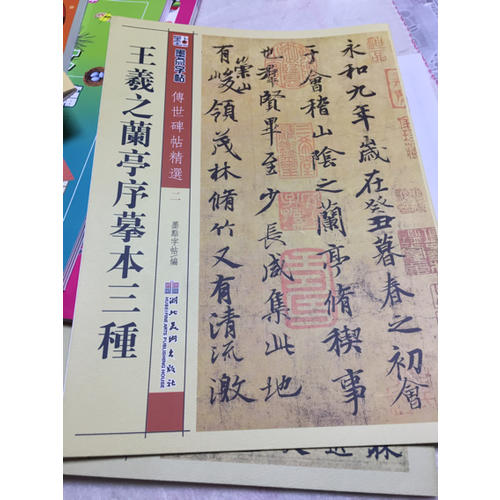 王羲之蘭亭序摹本三種
墨点字帖
傳世碑帖精選
二
墨點字帖 編
湖北美術出版社
HUBEI FINE ARTS PUBLISHING HOUSE
永和九年歲在癸丑暮春之初會
于會稽山陰之蘭亭脩稧事
也羣賢畢至少長咸集此地
有崇山峻領茂林脩竹又有清流激